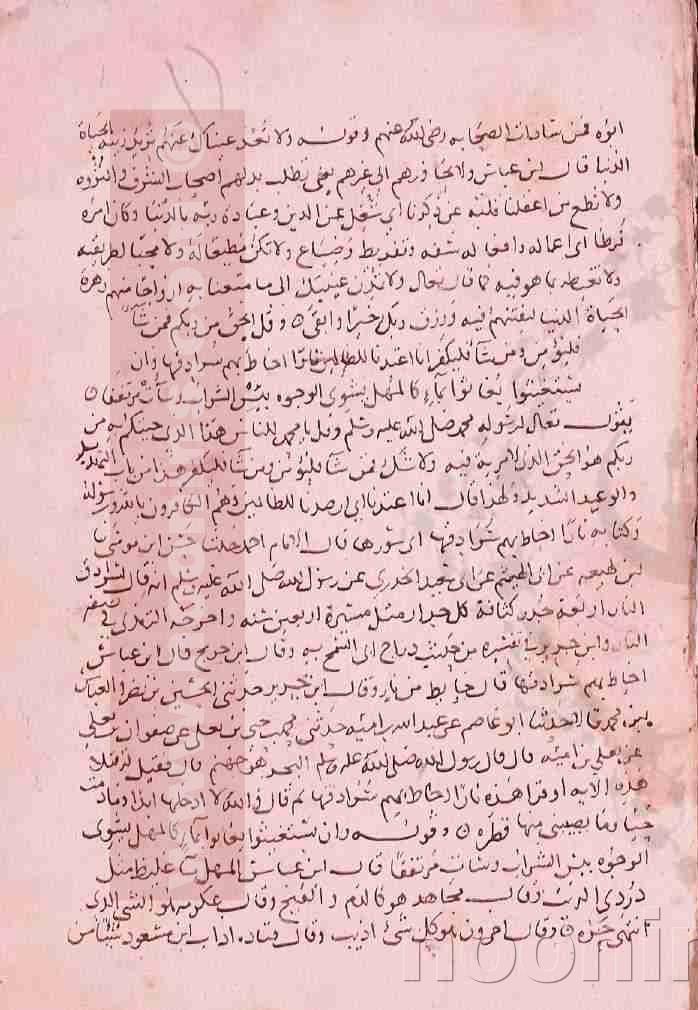 الوه فمن سادات الصحابه رضي الله عنهم وقوله ولا تعد عيناك عنهم تريد زينة الحياة
الدنيا قال ابن عباس ولا تجاوزهم الى غيرهم يعني تطلب بدلهم اصحاب الشرف والثروه
ولا تطع من اغفلنا قلبه عن ذكرنا اي شغل عن الدين وعبادة ربه بالدنيا وكان امره
فرطا اي اعماله وافعاله سفه وتفريط وضياع ولا تكن مطيعا له ولا محبا لطريقته
ولا تغبطه بما هو فيه كما قال تعالى ولا تمدن عينيك الى ما متعنا به ازواجا منهم زهرة
الحياة الدنيا لنفتنهم فيه ورزق ربك خير وابقى ٥ وقل الحق من ربكم فمن شآ
فليؤمن ومن شآ فليكفر انا اعتدنا للظالمين نارا احاط بهم سرادقها وان
يستغيثوا يغاثوا بمآء كالمهل يشوى الوجوه بيس الشراب وسآت مرتفقا ٥
يقول تعالى لرسوله محمد صلى الله عليه وسلم وقل يا محمد للناس هذا الذي جيتكم به من
ربكم هو الحق الذي لا مرية فيه ولا شك فمن شآ فليؤمن ومن شآ فليكفر هذا من باب التهديد
والوعيد الشديد ولهذا قال انا اعتدنا اي ارصدنا للظالمين وهم الكافرون بالله ورسوله
وكتابه نارا احاط بهم سرادقها اي سورها قال الامام احمد حدثنا حسن ابن موسى نا
ابن لهيعه عن ابي الهيثم عن ابي سعيد الخدري عن رسول الله صلى الله عليه وسلم انه قال لسرادق
النار اربعة جدر كثافة كل جدار مثل مسيرة اربعين سنه واخرجه الترمذي في صفه
النار وابن جرير في تفسيره من حديث دراج ابي السمح به وقال ابن جريج قال ابن عباس
احاط بهم سرادقها قال حايط من نار وقال ابن جرير حدثني الحسين بن نصر العباس
بن محمد قالا حدثنا ابو عاصم عن عبد الله بن اميه حدثني محمد بن حيي بن يعلى عن صفوان بن يعلي
عن يعلي بن اميه قال قال رسول الله صلى الله عليه وسلم البحر هو جهنم قال فقيل له فتلا
هذه الايه او قرا هذه نارا احاط بهم سرادقها ثم قال والله لا ادخلها ابدا وما دمت
حيا وما يصيبني منها قطره ٥ وقوله وان يستغيثوا يغاثوا بمآء كالمهل يشوى
الوجوه بيس الشراب وسات مرتفقا قال ابن عباس المهل مآ غليظ مثل
دردي الزيت وقال مجاهد هو كالدم والقيح وقال عكرمه هو الشي الذي
انتهى حره وقال اخرون هو كل شئ اذيب وقال قتاده اذاب ابن مسعود شيئا من
noonir